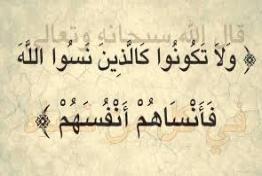 قال الله سبحانه وتعالى
﴿ وَلاَ تَكُونُوا كَالَّذِينَ نَسُوا اللَّهَ
فَأَنْسَاهُمْ أَنْفُسَهُمْ ﴾